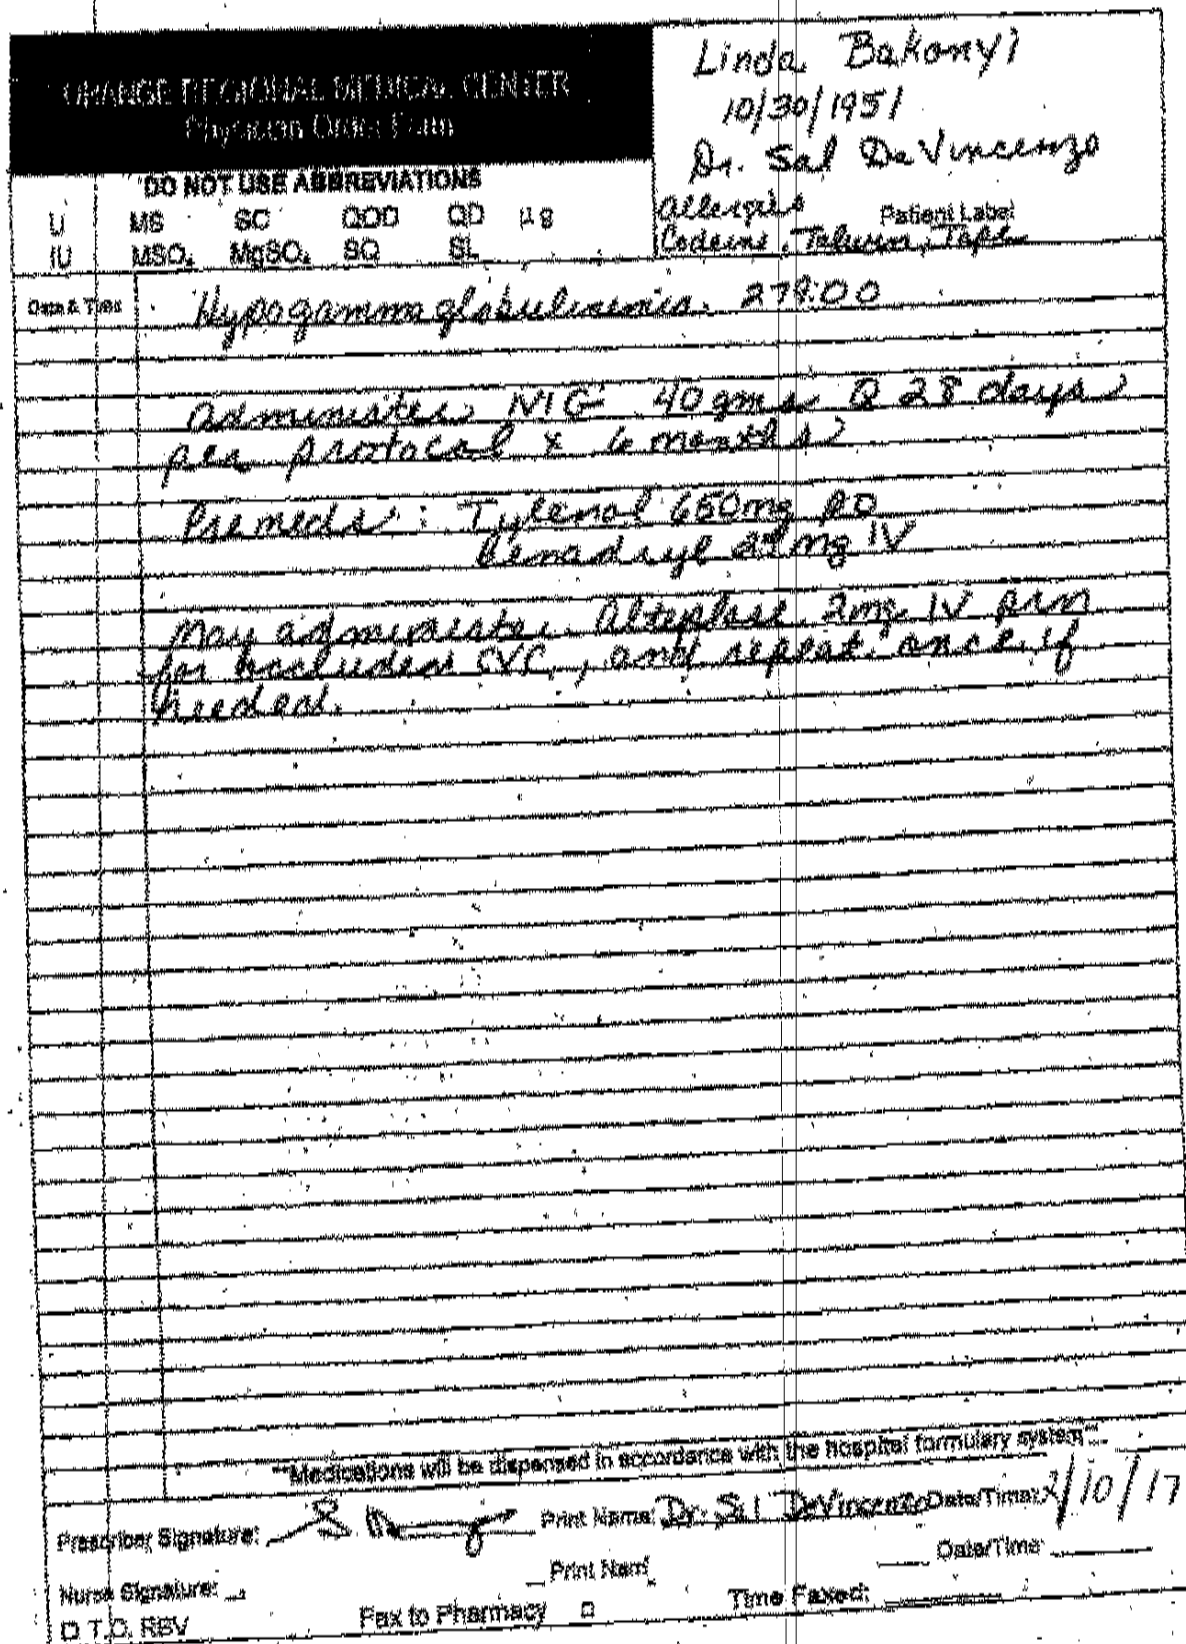 ORANGE REGIONAL MEDICAL CENTER
Physician Order Form
Linda Bakonyi
10/30/1951
Dr. Sal DeVincenzo
Allergies
Patient Label
Codeine, Tape
DO NOT USE ABBREVIATIONS
U MS SC QOD QD µg
IU MSO₄ MgSO₄ SQ SL
Date & Time
Hypogammaglobulinemia 279.00
Administer IVIG 40 gms Q 28 days
per protocal x 6 months
Premeds: Tylenol 650mg PO
Benadryl 25mg IV
May administer Alteplase 2mg IV prn
for occluded CVC, and repeat once if
needed.
"Medications will be dispensed in accordance with the hospital formulary system"
Prescriber Signature: Print Name: Dr. Sal DeVincenzo Date/Time: 2/10/17
Nurse Signature: Print Nam Date/Time:
T.O. RBV Fax to Pharmacy Time Faxed: